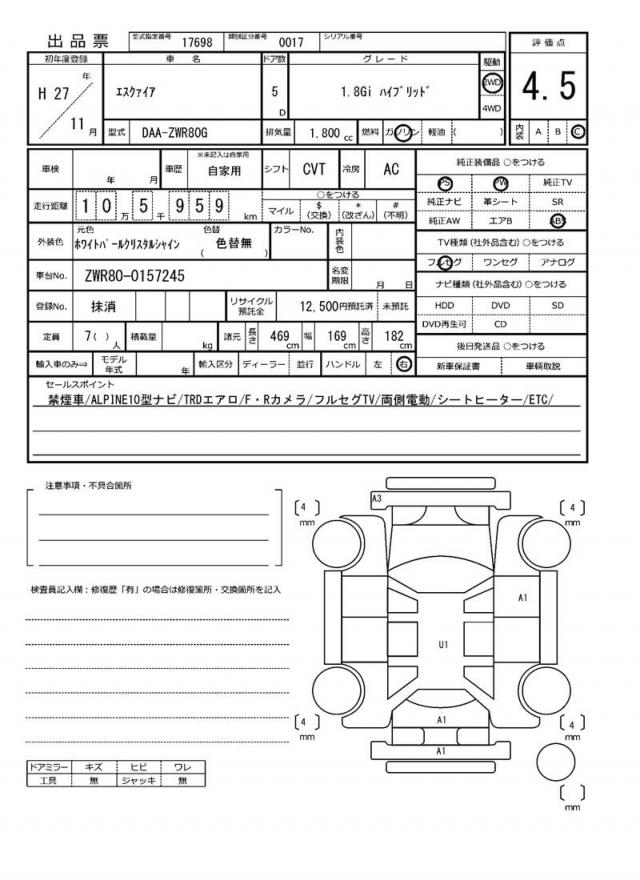 出 品 票 型式指定番号 17698 類別区分番号 0017 シリアル番号
評 価 点
4.5
内装 A B C
初年度登録 車 名 ドア数 グ レ ー ド 駆動
H 27 年 ｴｽｸｧｲｱ 5 D 1.8Gi ﾊｲﾌﾞﾘｯﾄﾞ 2WD
4WD
11 月 型式 DAA-ZWR80G 排気量 1,800 cc 燃料 ガソリン 軽油 ( )
車検 年 月 車歴 ※未記入は自家用 自家用 シフト CVT 冷房 AC
走行距離 1 0 万 5 千 9 5 9 km
○をつける
マイル $ (交換) * (改ざん) # (不明)
外装色 元色 ﾎﾜｲﾄﾊﾟｰﾙｸﾘｽﾀﾙｼｬｲﾝ 色替 ( 色替無 ) カラーNo. 内装色
車台No. ZWR80-0157245 名変期限 月 日
登録No. 抹消 リサイクル預託金 12,500円預託済 未預託
定員 7( ) 人 積載量 kg 諸元 長さ 469 cm 幅 169 cm 高さ 182 cm
輸入車のみ⇒ モデル年式 年 輸入区分 ディーラー 並行 ハンドル 左 右
純正装備品 ○をつける
PS PW 純正TV
純正ナビ 革シート SR
純正AW エアB ABS
TV種類 (社外品含む) ○をつける
フルセグ ワンセグ アナログ
ナビ種類 (社外品含む) ○をつける
HDD DVD SD
DVD再生可 CD
後日発送品 ○をつける
新車保証書 車輌取説
セールスポイント
禁煙車/ALPINE10型ナビ/TRDエアロ/F・Rカメラ/フルセグTV/両側電動/シートヒーター/ETC/
注意事項・不具合箇所
検査員記入欄：修復歴「有」の場合は修復箇所・交換箇所を記入
ドアミラー キズ ヒビ ワレ
工具 無 ジャッキ 無
A3
[ 4 ] mm
[ 4 ] mm
A1
U1
A1
[ 4 ] mm
[ 4 ] mm
A1
[ ] mm